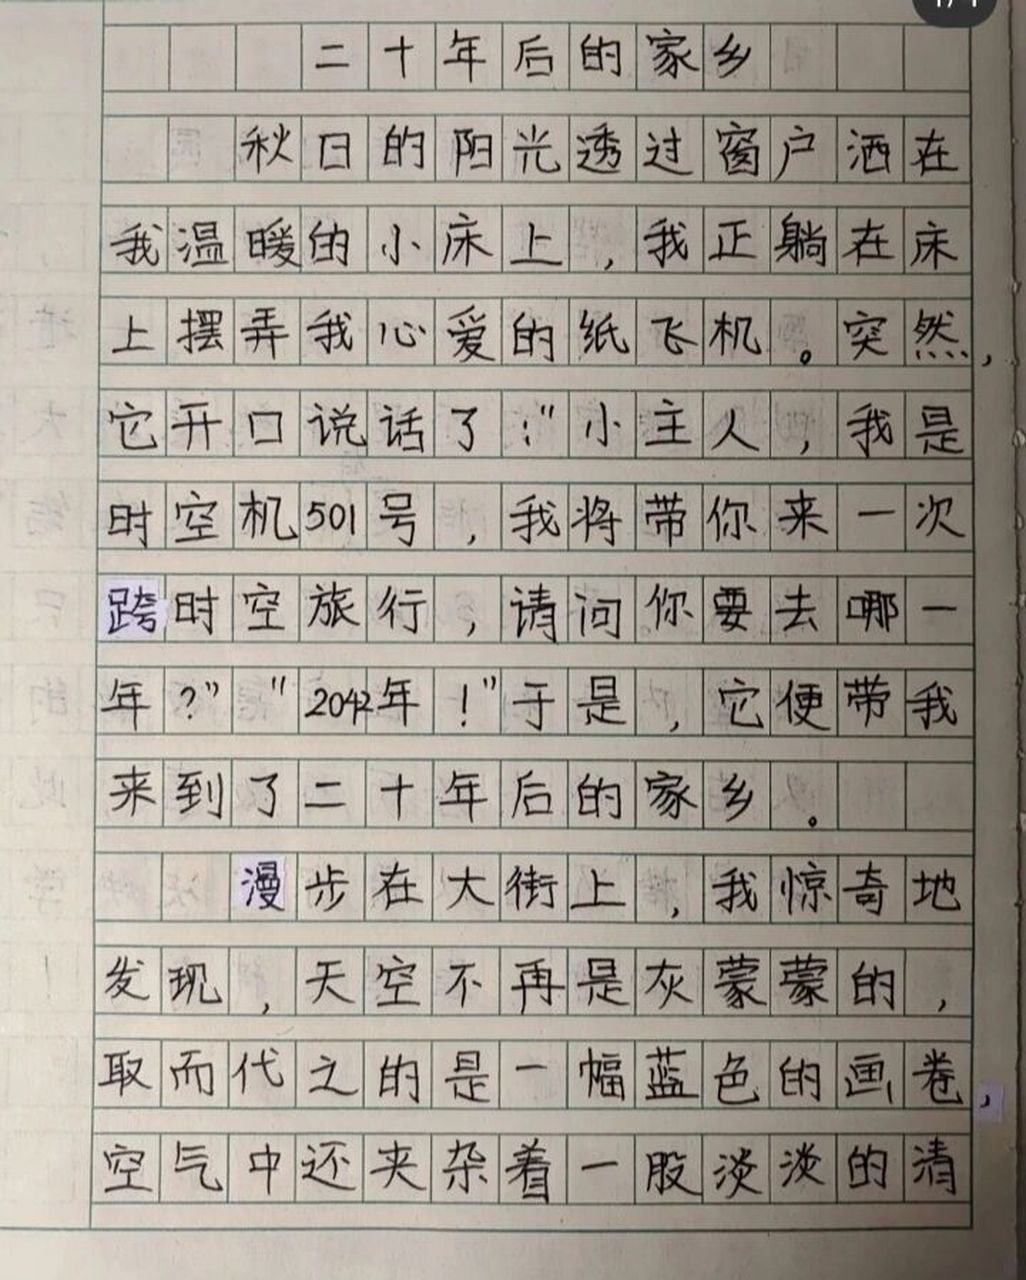 二十年后的家乡
秋日的阳光透过窗户洒在
我温暖的小床上,我正躺在床
上摆弄我心爱的纸飞机。突然,
它开口说话了:"小主人,我是
时空机501号,我将带你来一次
跨时空旅行,请问你要去哪一
年?""2042年!"于是,它便带我
来到了二十年后的家乡。
漫步在大街上,我惊奇地
发现,天空不再是灰蒙蒙的,
取而代之的是一幅蓝色的画卷,
空气中还夹杂着一股淡淡的清